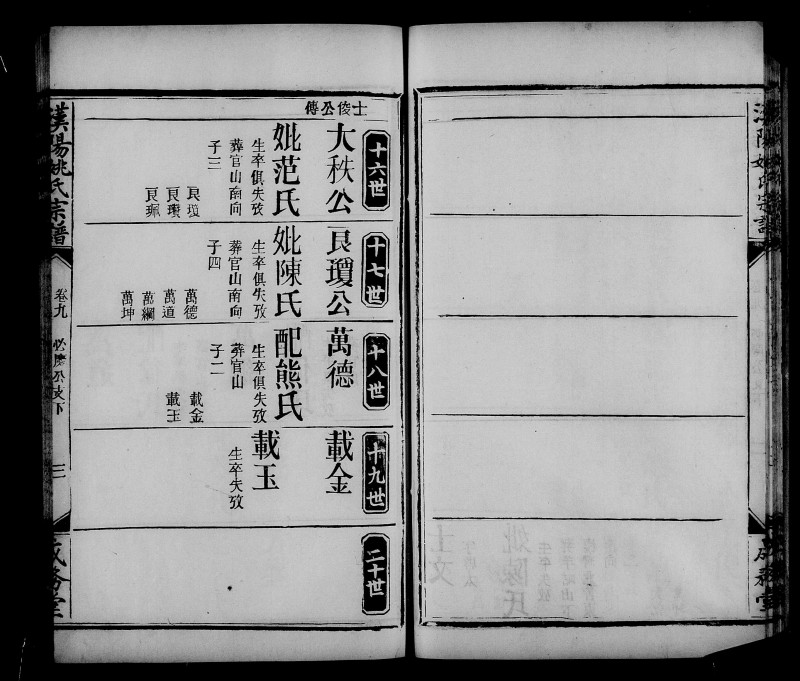 士俊公傳
十六世
大秩公
妣范氏
生卒俱失攷
葬官山南向
子三
艮瓊
艮瓚
艮珮
十七世
艮瓊公
妣陳氏
生卒俱失攷
葬官山南向
子四
萬德
萬道
萬綱
萬坤
十八世
萬德
配熊氏
生卒俱失攷
葬官山
子二
載金
載玉
十九世
載金
載玉
生卒失攷
二十世
漢陽姚氏宗譜
卷九
三
成務堂